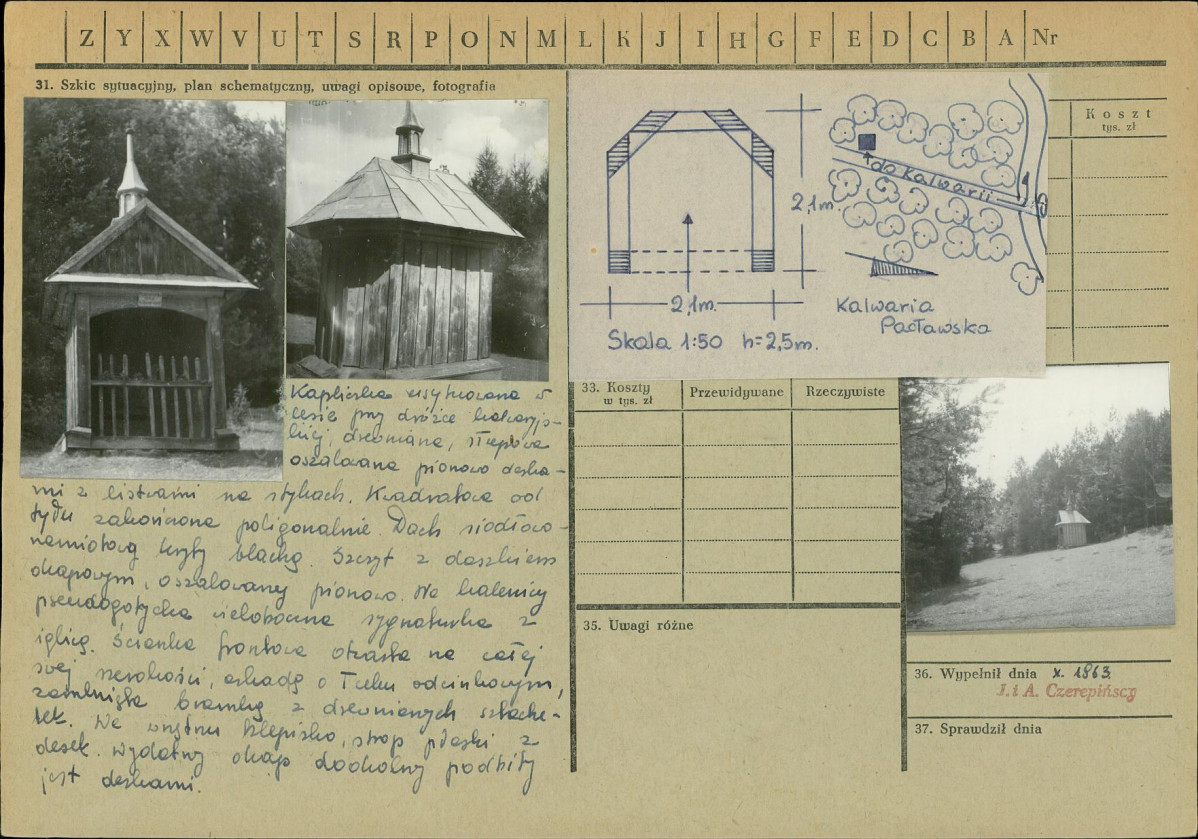 Z Y X W V U T S R P O N M L K J I H G F E D C B A Nr
31. Szkic sytuacyjny, plan schematyczny, uwagi opisowe, fotografia
Kapliczka usytuowana w
lesie przy dróżce kalwaryjs-
kiej, drewniana, słupowa
oszalowana pionowo deska-
mi z listwami na stykach. Kwadratowa od
tyłu zakończona poligonalnie. Dach siodłowo-
namiotowy kryty blachą. Szczyt z daszkiem
okapowym, oszalowany pionowo. Na kalenicy
pseudogotycka wieloboczna sygnaturka z
iglicą. Ścianka frontowa otwarta na całej
swej szerokości, arkadą o łuku odcinkowym,
zamknięta bramką z drewnianych sztache-
tek. We wnętrzu klepisko, strop płaski z
desek. Wydatny okap dookolny podbity
jest deskami.
2,1m.
2,1m.
Skala 1:50 h=2,5m.
do Kalwarii
Kalwaria
Pacławska
Koszt
tys. zł
33. Koszty
w tys. zł
Przewidywane
Rzeczywiste
35. Uwagi różne
36. Wypełnił dnia x. 1963
J. i A. Czerepińscy
37. Sprawdził dnia